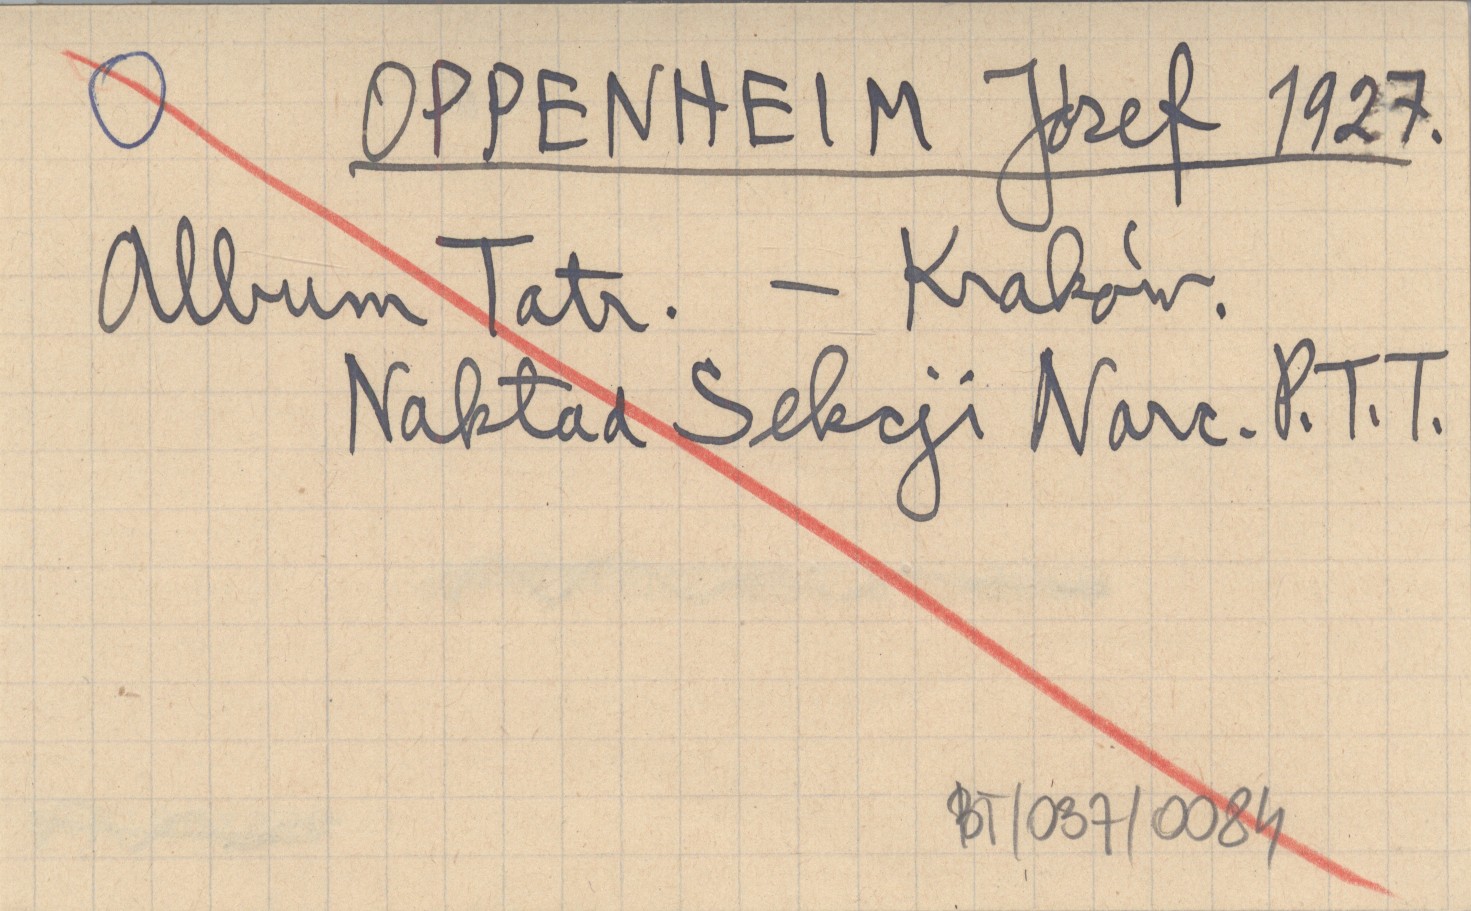 O OPPENHEIM Józef 1927.
Album Tatr. — Kraków.
Nakład Sekcji Narc. P.T.T.
BT/037/0084